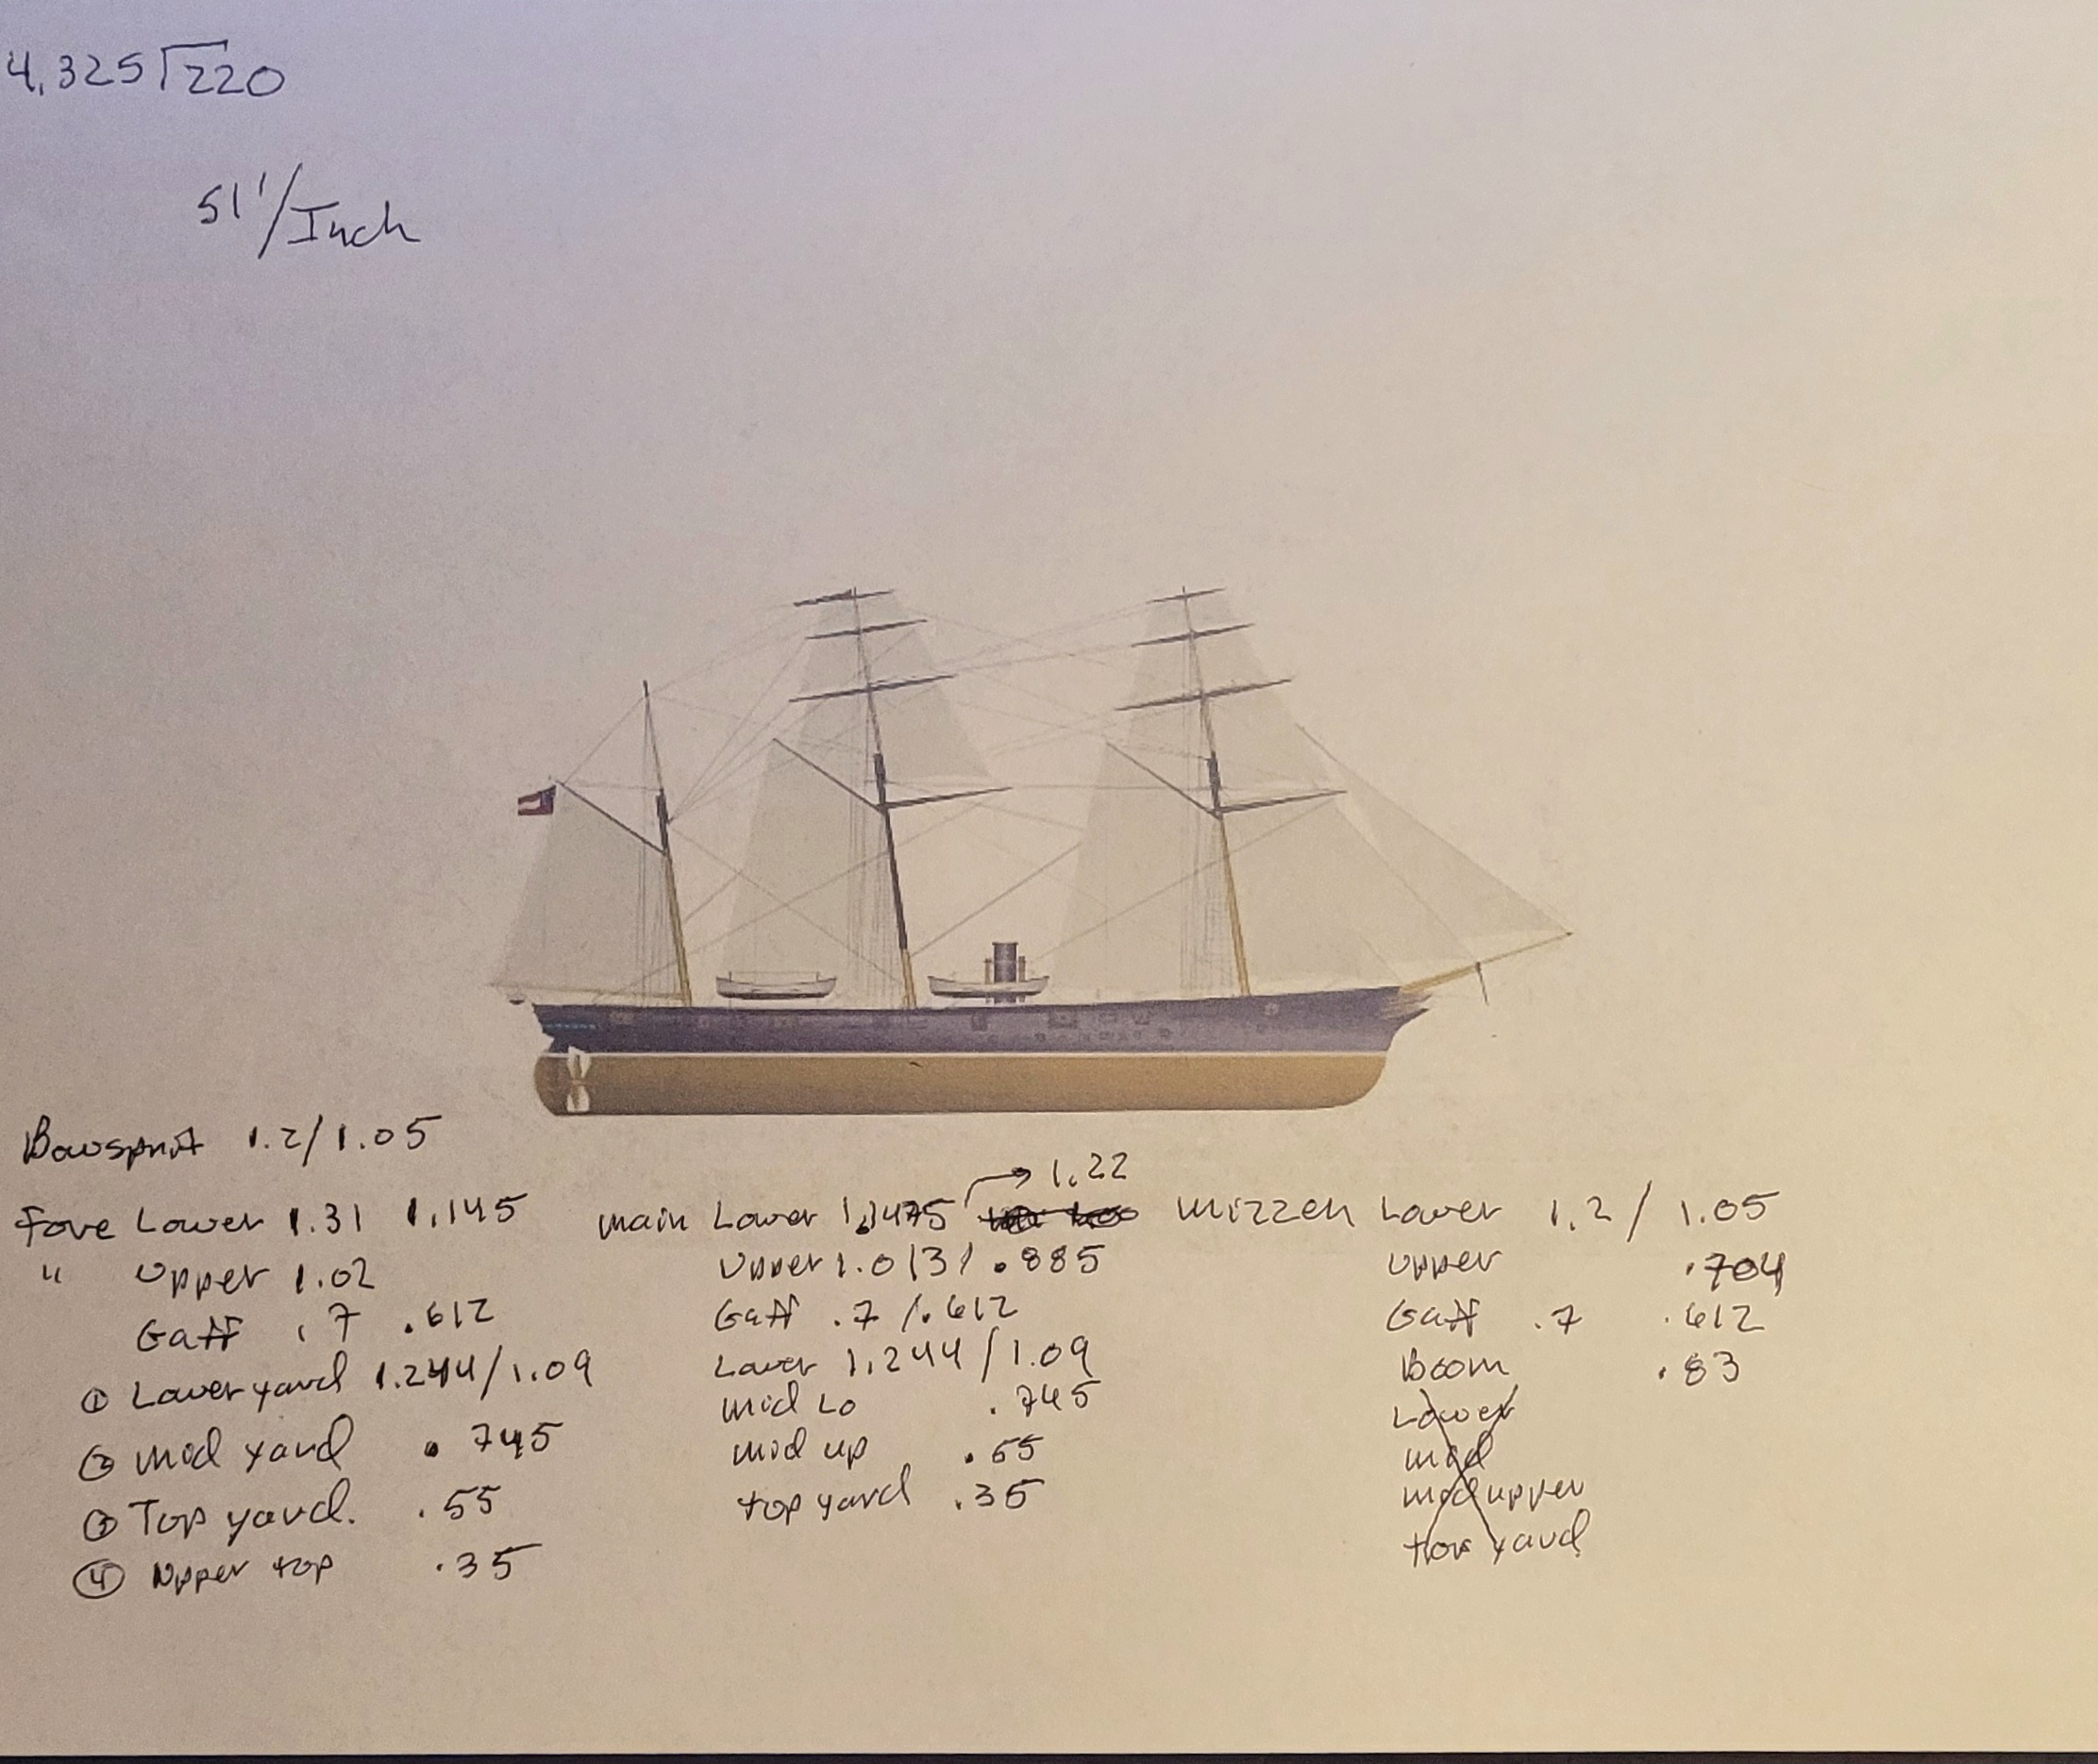 4,325 220
51'/Inch
Bowsprit 1.2/1.05
Fore Lower 1.31 1.145
" Upper 1.02
Gaff .7 .612
① Lower yard 1.244/1.09
② mid yard .745
③ Top yard. .55
④ Upper top .35
→ 1.22
main Lower 1.3475
Upper 1.013/ .885
Gaff .7/.612
Lower 1.244/1.09
mid Lo .745
mid up .55
top yard .35
mizzen Lower 1.2/1.05
upper .704
Gaff .7 .612
Boom .83
Lower
mid
mid upper
top yard